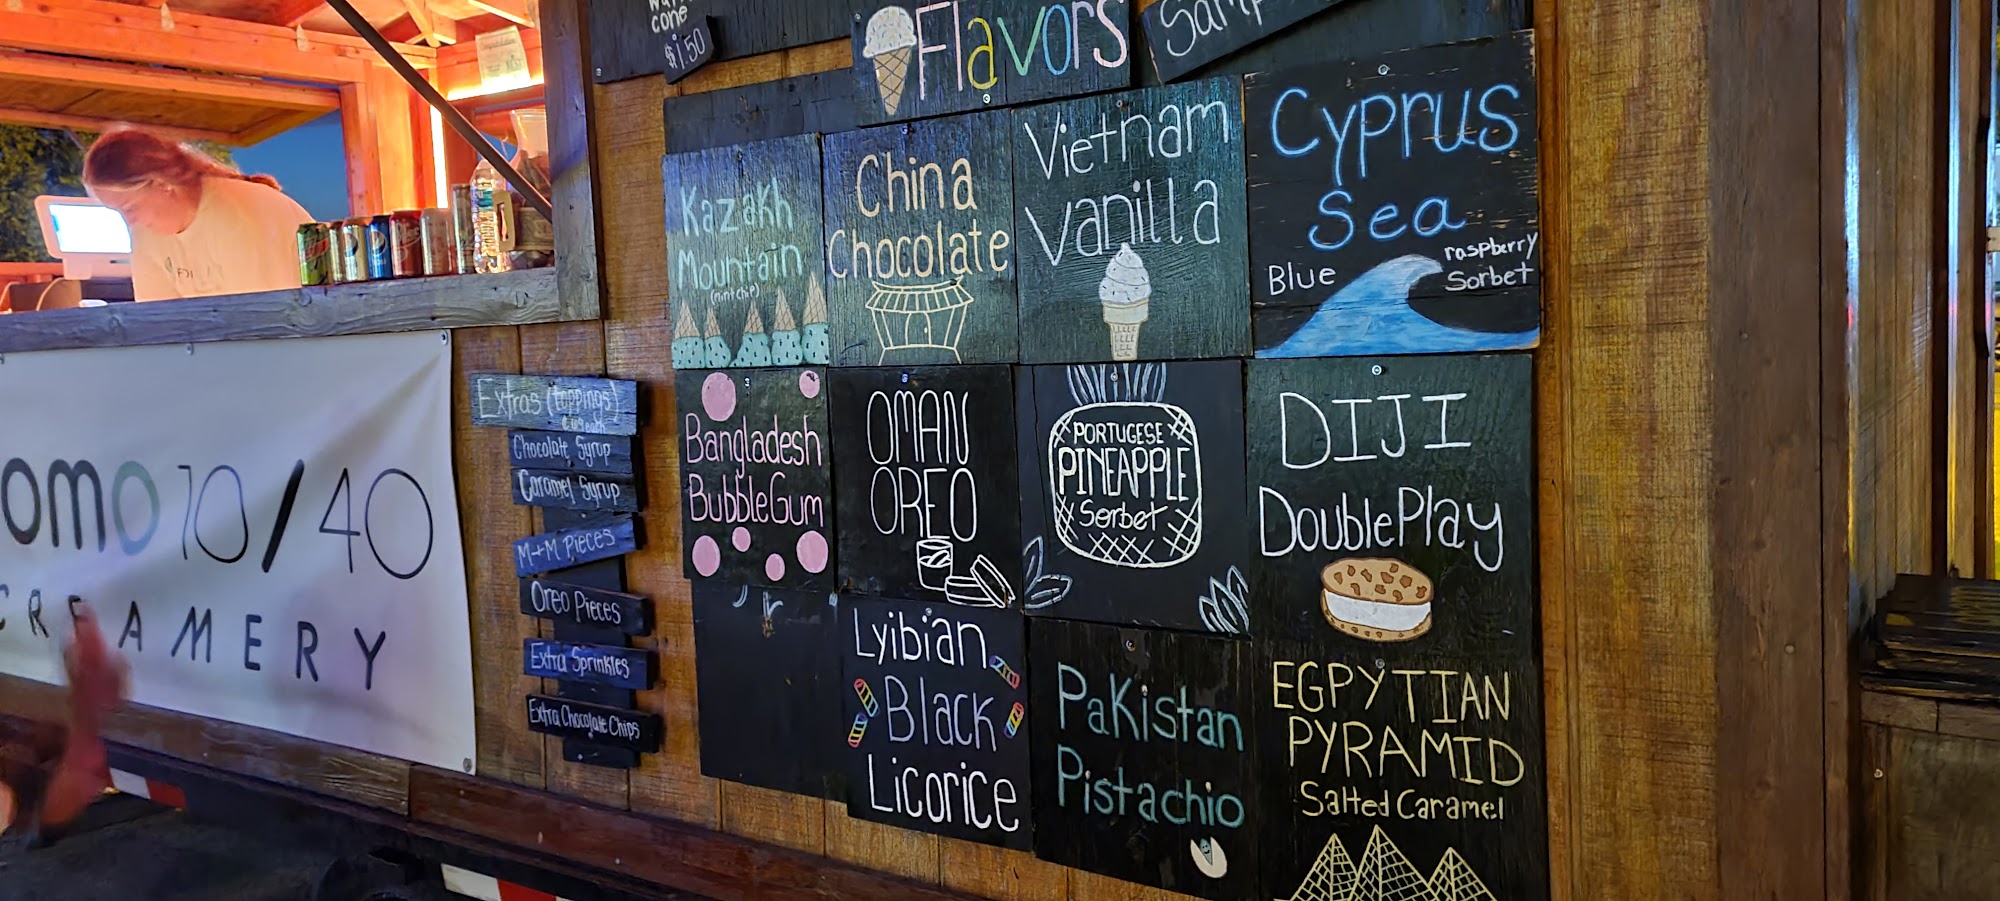 cone
$1.50
Flavors
Kazakh
Mountain
(mint chip)
China
Chocolate
Vietnam
Vanilla
Cyprus
Sea
Blue
raspberry
Sorbet
Extras (toppings)
Chocolate Syrup
Caramel Syrup
M+M Pieces
Oreo Pieces
Extra Sprinkles
Extra Chocolate Chips
Bangladesh
BubbleGum
OMAN
OREO
PORTUGESE
PINEAPPLE
Sorbet
DIJI
DoublePlay
Lyibian
Black
Licorice
Pakistan
Pistachio
EGPYTIAN
PYRAMID
Salted Caramel
omo 10/40
CREAMERY